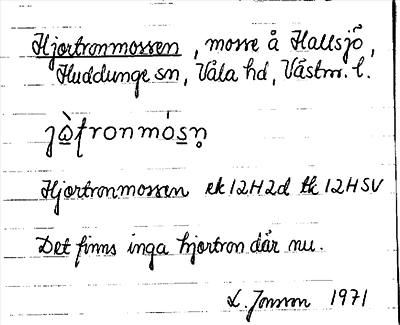 Hjortronmossen, mosse å Hallsjö,
Huddunge sn, Våla hd, Västm. l.
jὰ̠ʈronmós̠n̥
Hjortronmossen ek 12H2d tk 12HSV
Det finns inga hjortron där nu.
L. Jonson 1971